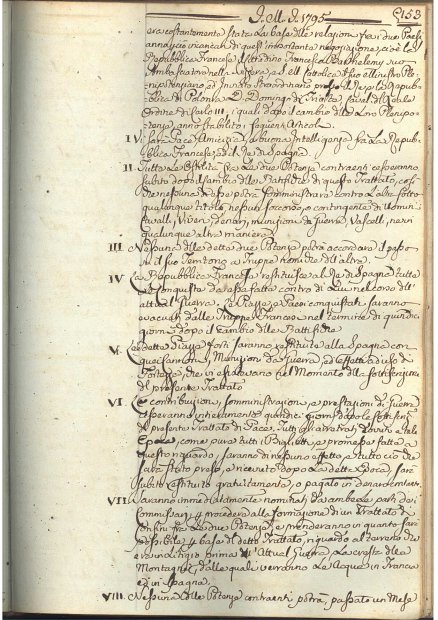 J. M. J. 1795
153
era costantemente stata La base delle relazioni fra i due Paesi
anno incaricati di quest'importante negoziazione, cioè la
Repubblica Francese il Cittadino Francesco Barthelemy suo
Ambasciatore nella Svizzera, e S. M. Cattolica il suo Ministro Ple-
nipotenziario ed Inviato Straordinario presso il Re, e la Repub-
blica di Polonia D. Domingo d'Yriarte, Caval. del Reale
Ordine di Carlo III, i quali dopo il cambio delle Loro Plenipo-
tenze anno stabiliti i seguenti Articoli
I Vi sarà Pace, Amicizia, e buona Intelligenza fra La Repub-
blica Francese, ed il Re di Spagna
II. Tutte Le Ostilità fra Le due Potenze contraenti cesseranno
subito dopo il Cambio delle Ratifiche di questo Trattato, cosi
che nessuna di esse potrà somministrare contro L'altra sotto
qualunque titolo, nessun soccorso, o contingente di Uomini
Cavalli, Viveri, denari, munizioni da Guerra, Vascelli, ne in
qualunque altra maniera
III. Nessuna delle dette due Potenze potrà accordare il passo
pel suo Territorio a Truppe nemiche dell'altra.
IV. La Repubblica Francese restituisce al Re di Spagna tutte
Le Conquiste da essa fatte contro di Lui nel corso dell'
attual Guerra. Le Piazze, e Paesi conquistati saranno
evacuati dalle Truppe Francesi nel termine di quindici
giorni dopo il Cambio delle Ratifiche
V. Le dette Piazze Forti saranno restituite alla Spagna con
quei Cannoni, Munizioni da Guerra, ed effetti ad uso di
Fortezze, che vi esistevano nel Momento della sottoscrizione
del presente Trattato
VI. Le contribuzioni, somministrazioni, e prestazioni di Guerra
cesseranno interamente quindici giorni dopo la sottoscriz.
del presente Trattato di Pace. Tutti gli arretrati dovuti a tale
Epoca, come pure tutti i Biglietti, e promesse fatte a
questo riguardo, saranno di nessuno effetto, e tutto ciò che
sarà stato preso, e ricevuto dopo La detta Epoca, sarà
subito restituito gratuitamente, o pagato in denaro contante
VII. Saranno immediatamente nominati da ambe le parti dei
Commissarj per procedere alla formazione di un Trattato di
Confini fra Le due Potenze, e prenderanno in quanto sarà
possibile, per base di detto Trattato, riguardo al terreno che
era in Litigio prima dell'Attual Guerra, La cresta delle
Montagne, dalle quali versano Le Acque in Francia
ed in Spagna.
VIII. Nessuna delle Potenze contraenti potrà, passato un Mese